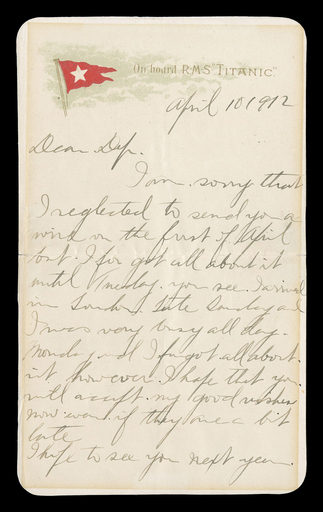 On board R.M.S. "TITANIC".
April 10 1912
Dear
I am sorry that
I neglected to send you a
wire on the first of April
but I forgot all about it
until Tuesday. you see I arrived
in London late Sunday and
I was very busy all day
Monday and I forgot all about
it however I hope that you
will accept my good wishes
now even if they are a bit
late
I hope to see you next year.